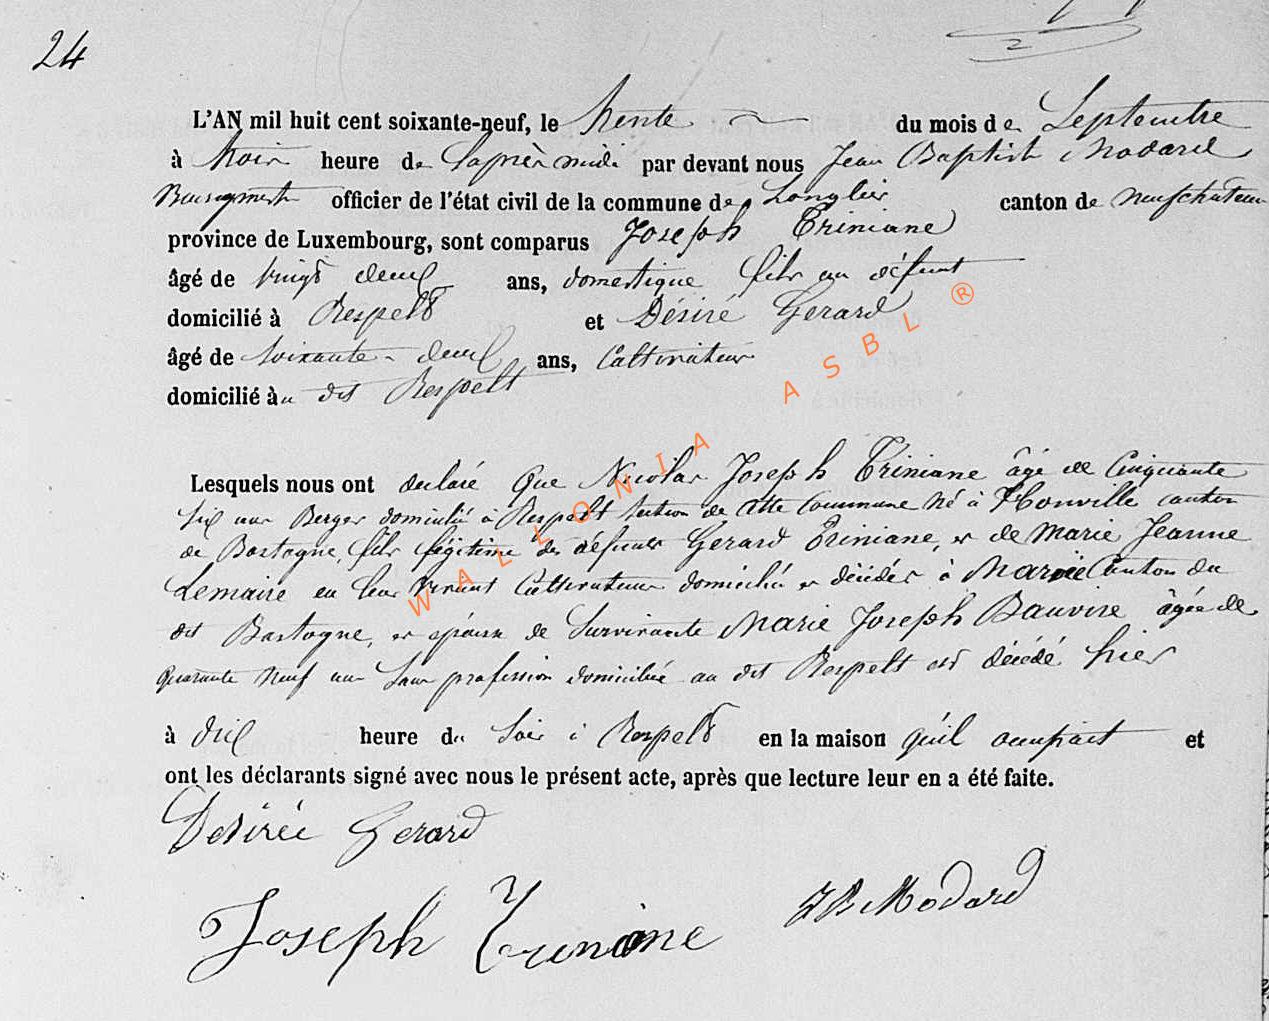 24
L'AN mil huit cent soixante-neuf, le trente du mois de Septembre
à trois heure de laprès midi par devant nous Jean Baptiste Modard
Bourgmestre officier de l'état civil de la commune de Longlier canton de neufchateau
province de Luxembourg, sont comparus Joseph Triniane
âgé de vingt deux ans, domestique fils au défunt
domicilié à Respelt et Désiré Gerard
âgé de soixante-deux ans, Cultivateur
domicilié au dit Respelt
Lesquels nous ont declaré que Nicolas Joseph Triniane âgé de Cinquante
six ans Berger domicilié à Respelt section de cette commune né à Honville canton
de Bastogne, fils légitime des défunts Gerard Triniane, et de Marie Jeanne
Lemaire en leur vivant Cultivateurs domiciliés et décédés à Canton du
dit Bastogne, et epoux de Survivante Marie Joseph Bauvire âgée de
quarante neuf ans Sans profession domiciliée au dit Respelt est décédé hier
à dix heure du soir à Respelt en la maison qu'il occupait et
ont les déclarants signé avec nous le présent acte, après que lecture leur en a été faite.
Desirée Gerard
Joseph Triniane
JB Modard
WALLONIA ASBL ®